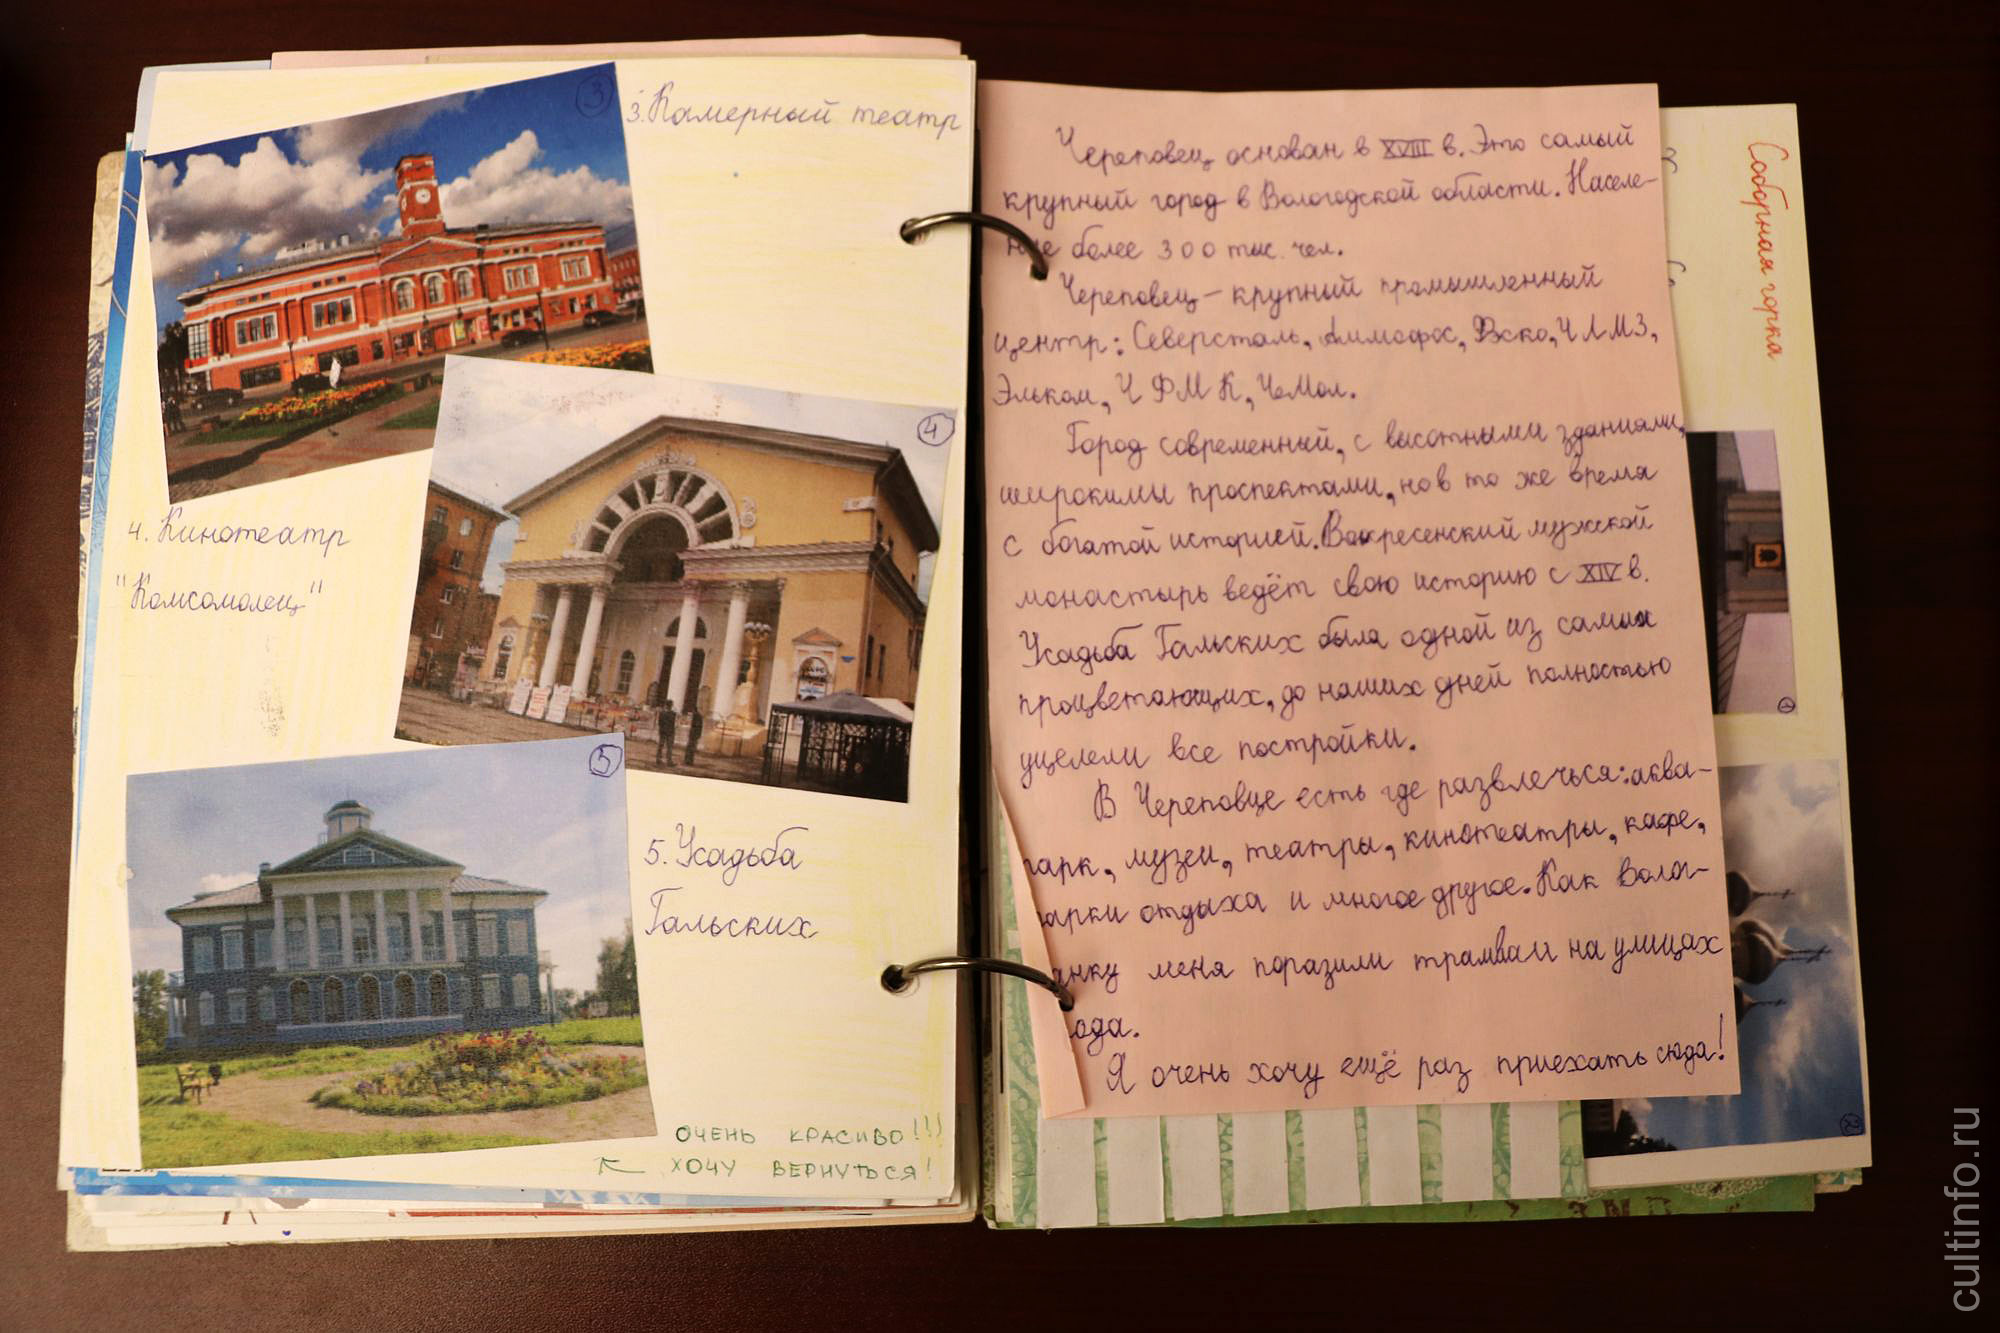 3
3. Камерный театр
4
4. Кинотеатр
"Комсомолец"
5
5. Усадьба
Гальских
ОЧЕНЬ КРАСИВО!!!
ХОЧУ ВЕРНУТЬСЯ!
Череповец основан в XVIII в. Это самый
крупный город в Вологодской области. Населе-
ние более 300 тыс. чел.
Череповец – крупный промышленный
центр: Северсталь, Аммофос, Вско, ЧЛМЗ,
Эльком, ЧФМК, ЧеМол.
Город современный, с высотными зданиями,
широкими проспектами, но в то же время
с богатой историей. Воскресенский мужской
монастырь ведёт свою историю с XIV в.
Усадьба Гальских была одной из самых
процветающих, до наших дней полностью
уцелели все постройки.
В Череповце есть где развлечься: аква-
парк, музеи, театры, кинотеатры, кафе,
парки отдыха и многое другое. Как волог-
анку меня поразили трамваи на улицах
ода.
Я очень хочу ещё раз приехать сюда!
Соборная горка
cultinfo.ru